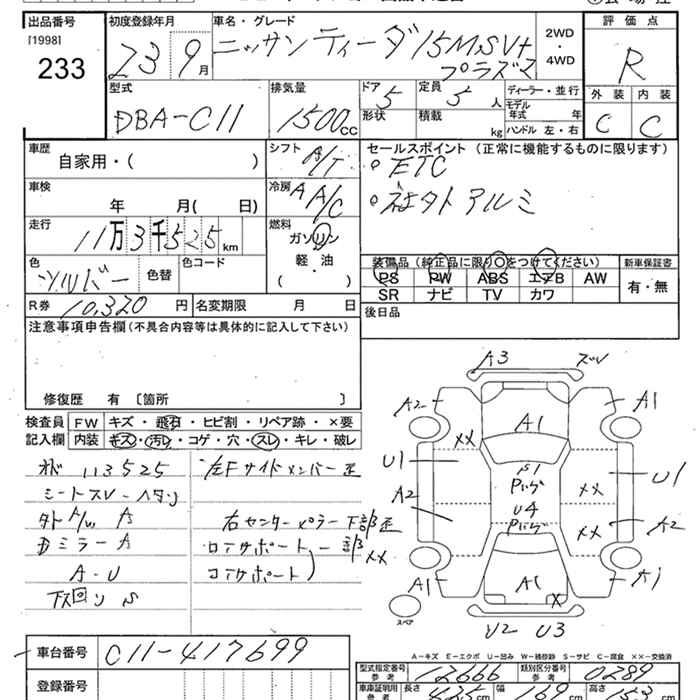 出品番号 初度登録年月 車名・グレード 評価点
[1998] 233 23 9月 ニッサンティーダ 15M SV+ プラズマ 2WD・4WD R
外装 内装
C C
型式 排気量 ドア 5 定員 5人 ディーラー・並行
DBA-C11 1500cc 形状 積載 kg モデル年式 年式
ハンドル 左・右
車歴 シフト A/T セールスポイント (正常に機能するものに限ります)
自家用・( ) ETC
車検 冷房 A A/C 社外アルミ
年 月( 日)
走行 燃料
11万3千525km ガソリン
軽・油
( )
装備品(純正品に限り○をつけてください) 新車保証書
色 シルバー 色替 色コード PS PW ABS エアB AW 有・無
SR ナビ TV カワ
R券 10,320円 名変期限 月 日 後日品
注意事項申告欄(不具合内容等は具体的に記入して下さい)
修復歴 有 〔箇所 〕
検査員 FW キズ・飛石・ヒビ割・リペア跡・×要
記入欄 内装 キズ・汚レ・コゲ・穴・スレ・キレ・破レ
113525 左Fサイドメンバー歪
シートスレ
右センターピラー下部歪
ミラーA
A・U
下回り S
A3
A2 A1 A1
XX
U1 S1 U1
A2 U4 XX A2
XX
A1 A1 X A1
スペア
U2 U3
A-キズ E-エクボ U-凹み W-補修跡 S-サビ C-腐食 XX-交換済
車台番号 C11-417699
型式指定番号 参考 12666 類別区分番号 参考 0289
登録番号
車庫証明用 参考 長さ cm 幅 169cm 高さ 153cm